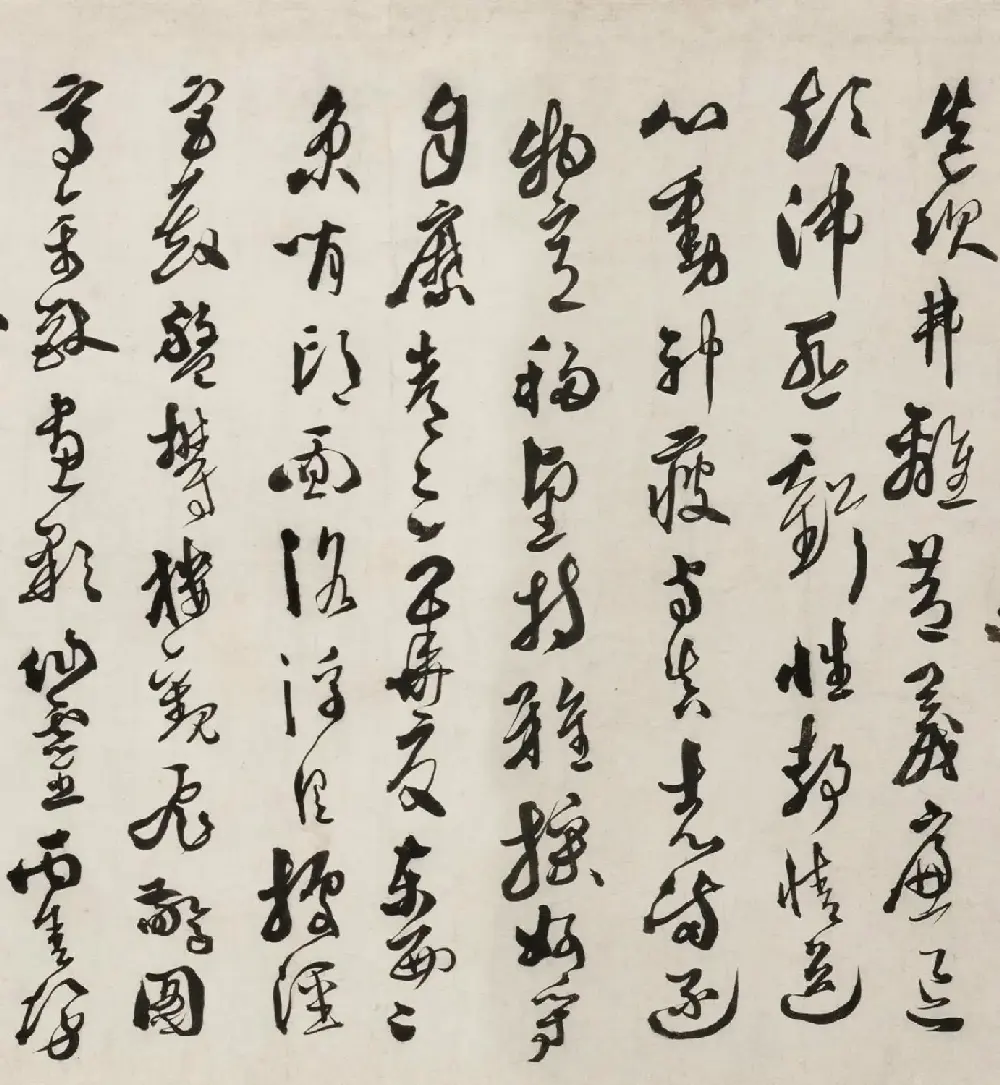 造次弗離節義廉退
顛沛匪虧性靜情逸
心動神疲守真志滿逐
物意移堅持雅操好爵
自縻都邑華夏東西二
京背邙面洛浮渭據涇
宮殿盤鬱樓觀飛驚圖
寫禽獸畫彩仙靈丙舍傍